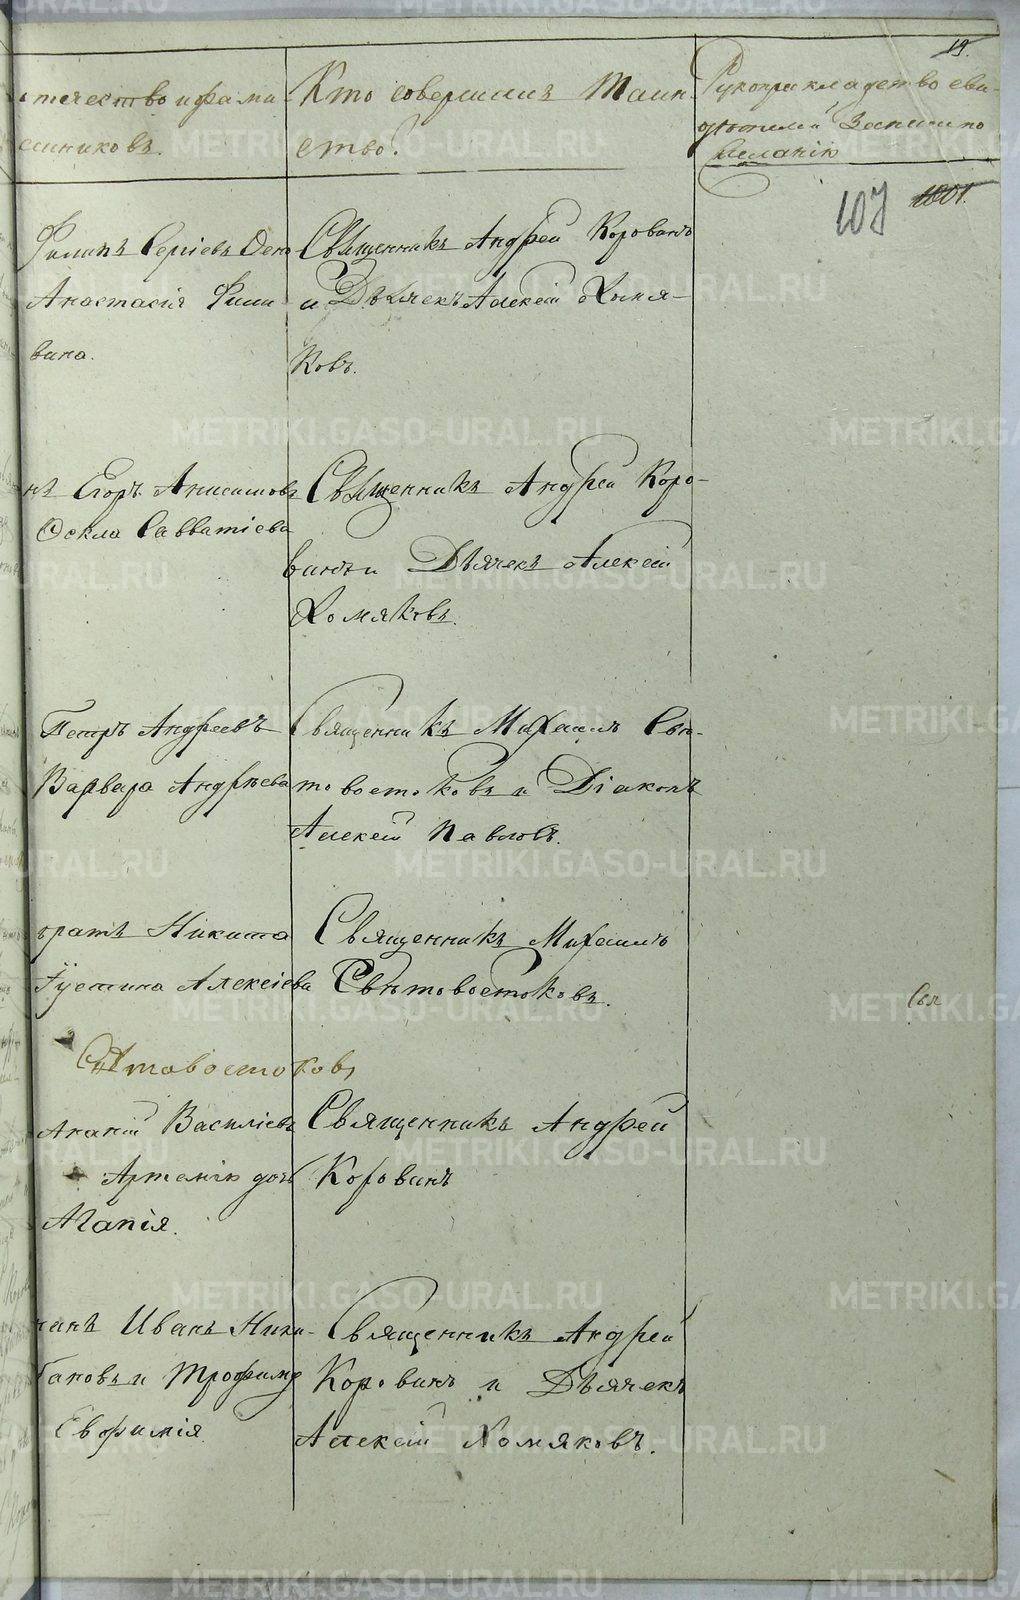 19.
отечество и фами-
емниковъ.
Кто совершилъ таин-
ство?
Рукоприкладство сви-
дѣтелей записи по
желанію
107 1001.
Филипъ Сергіевъ
Анастасія Фили-
вина.
Священникъ Андрей Корованъ
и Дьячекъ Алексѣй Хомя-
ковъ.
нъ Егоръ Анисимовъ
Ѳекла Савватіева
Священникъ Андрей Коро-
винъ и Дьячекъ Алексѣй
Хомяковъ.
Петръ Андреевъ
Варвара Андрѣева
Священникъ Михаилъ Свѣ-
товостоковъ и Діаконъ
Алексѣй Павловъ.
братъ Никита
Іустина Алексіева
Священникъ Михаилъ
Свѣтовостоковъ.
Свя
Свѣтовостоковъ
Ананій Василіевъ
Артемію дочь
Агапія.
Священникъ Андрей
Корованъ
чанъ Иванъ Ники-
бановъ и Трофимъ
Евфимія.
Священникъ Андрей
Коровинъ и Дьячекъ
Алексѣй Хомяковъ.
METRIKI.GASO-URAL.RU